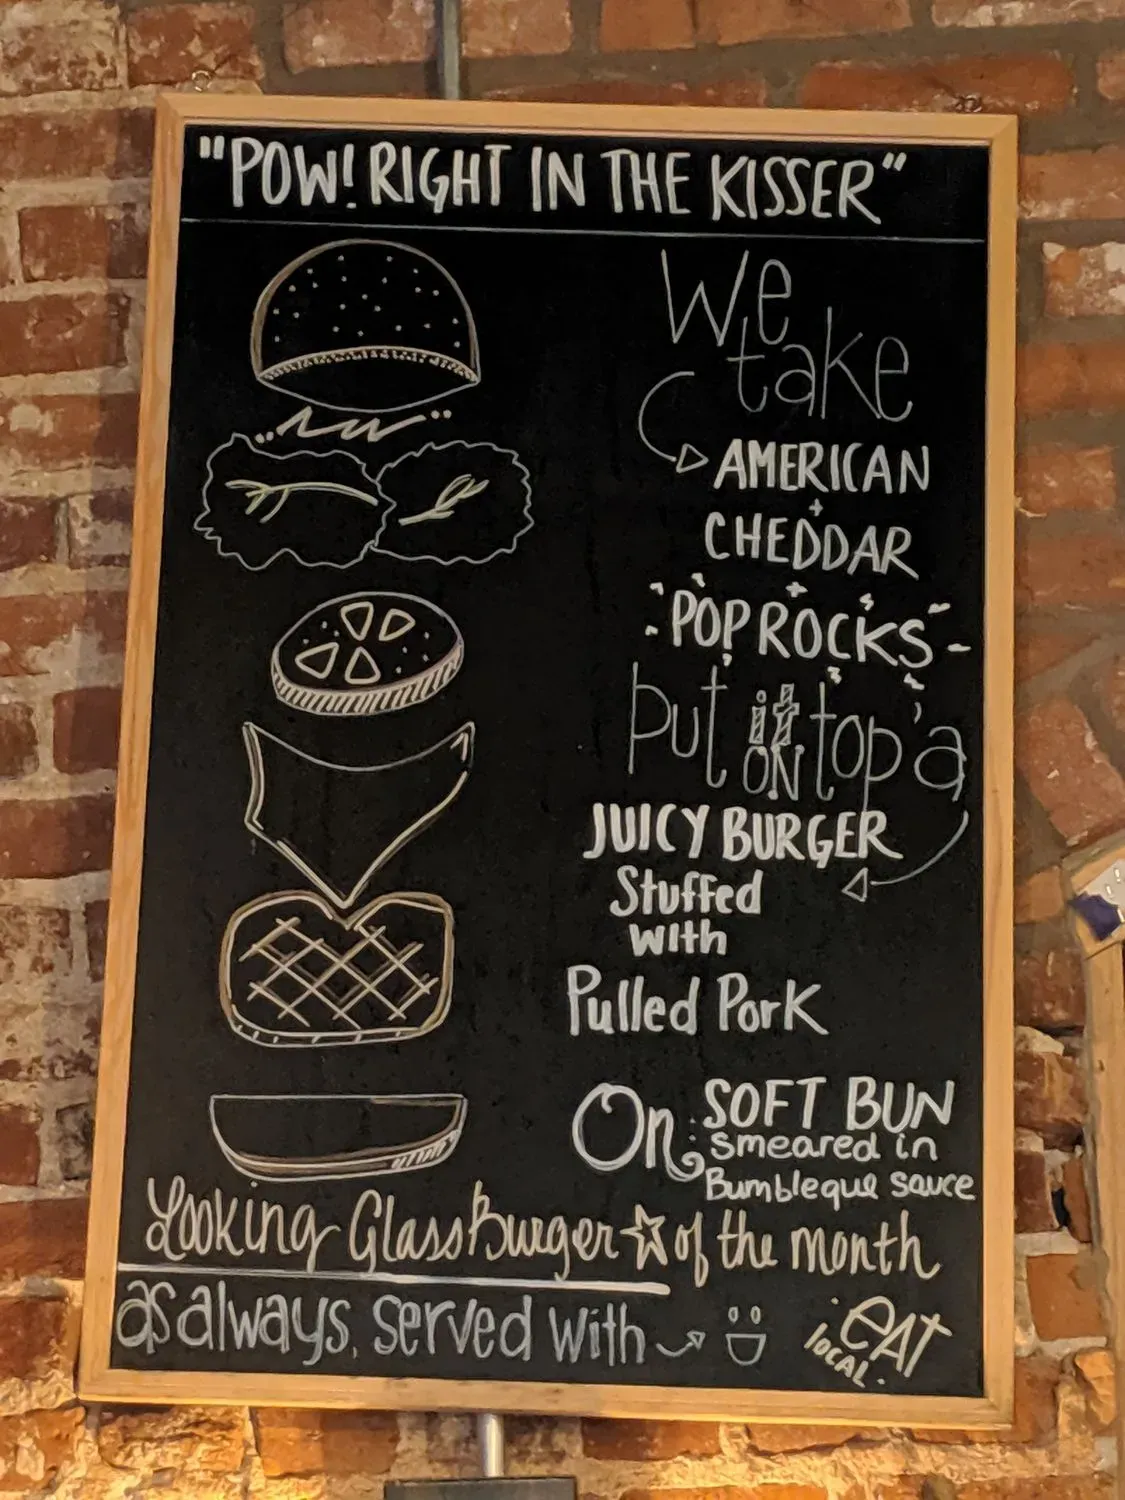 "POW! RIGHT IN THE KISSER"
We
take
AMERICAN
+
CHEDDAR
POP ROCKS
put it top'a
ON
JUICY BURGER
Stuffed
with
Pulled Pork
On SOFT BUN
smeared in
Bumbleque sauce
Looking Glass Burger of the month
as always, served with
eAT
LOCAL.